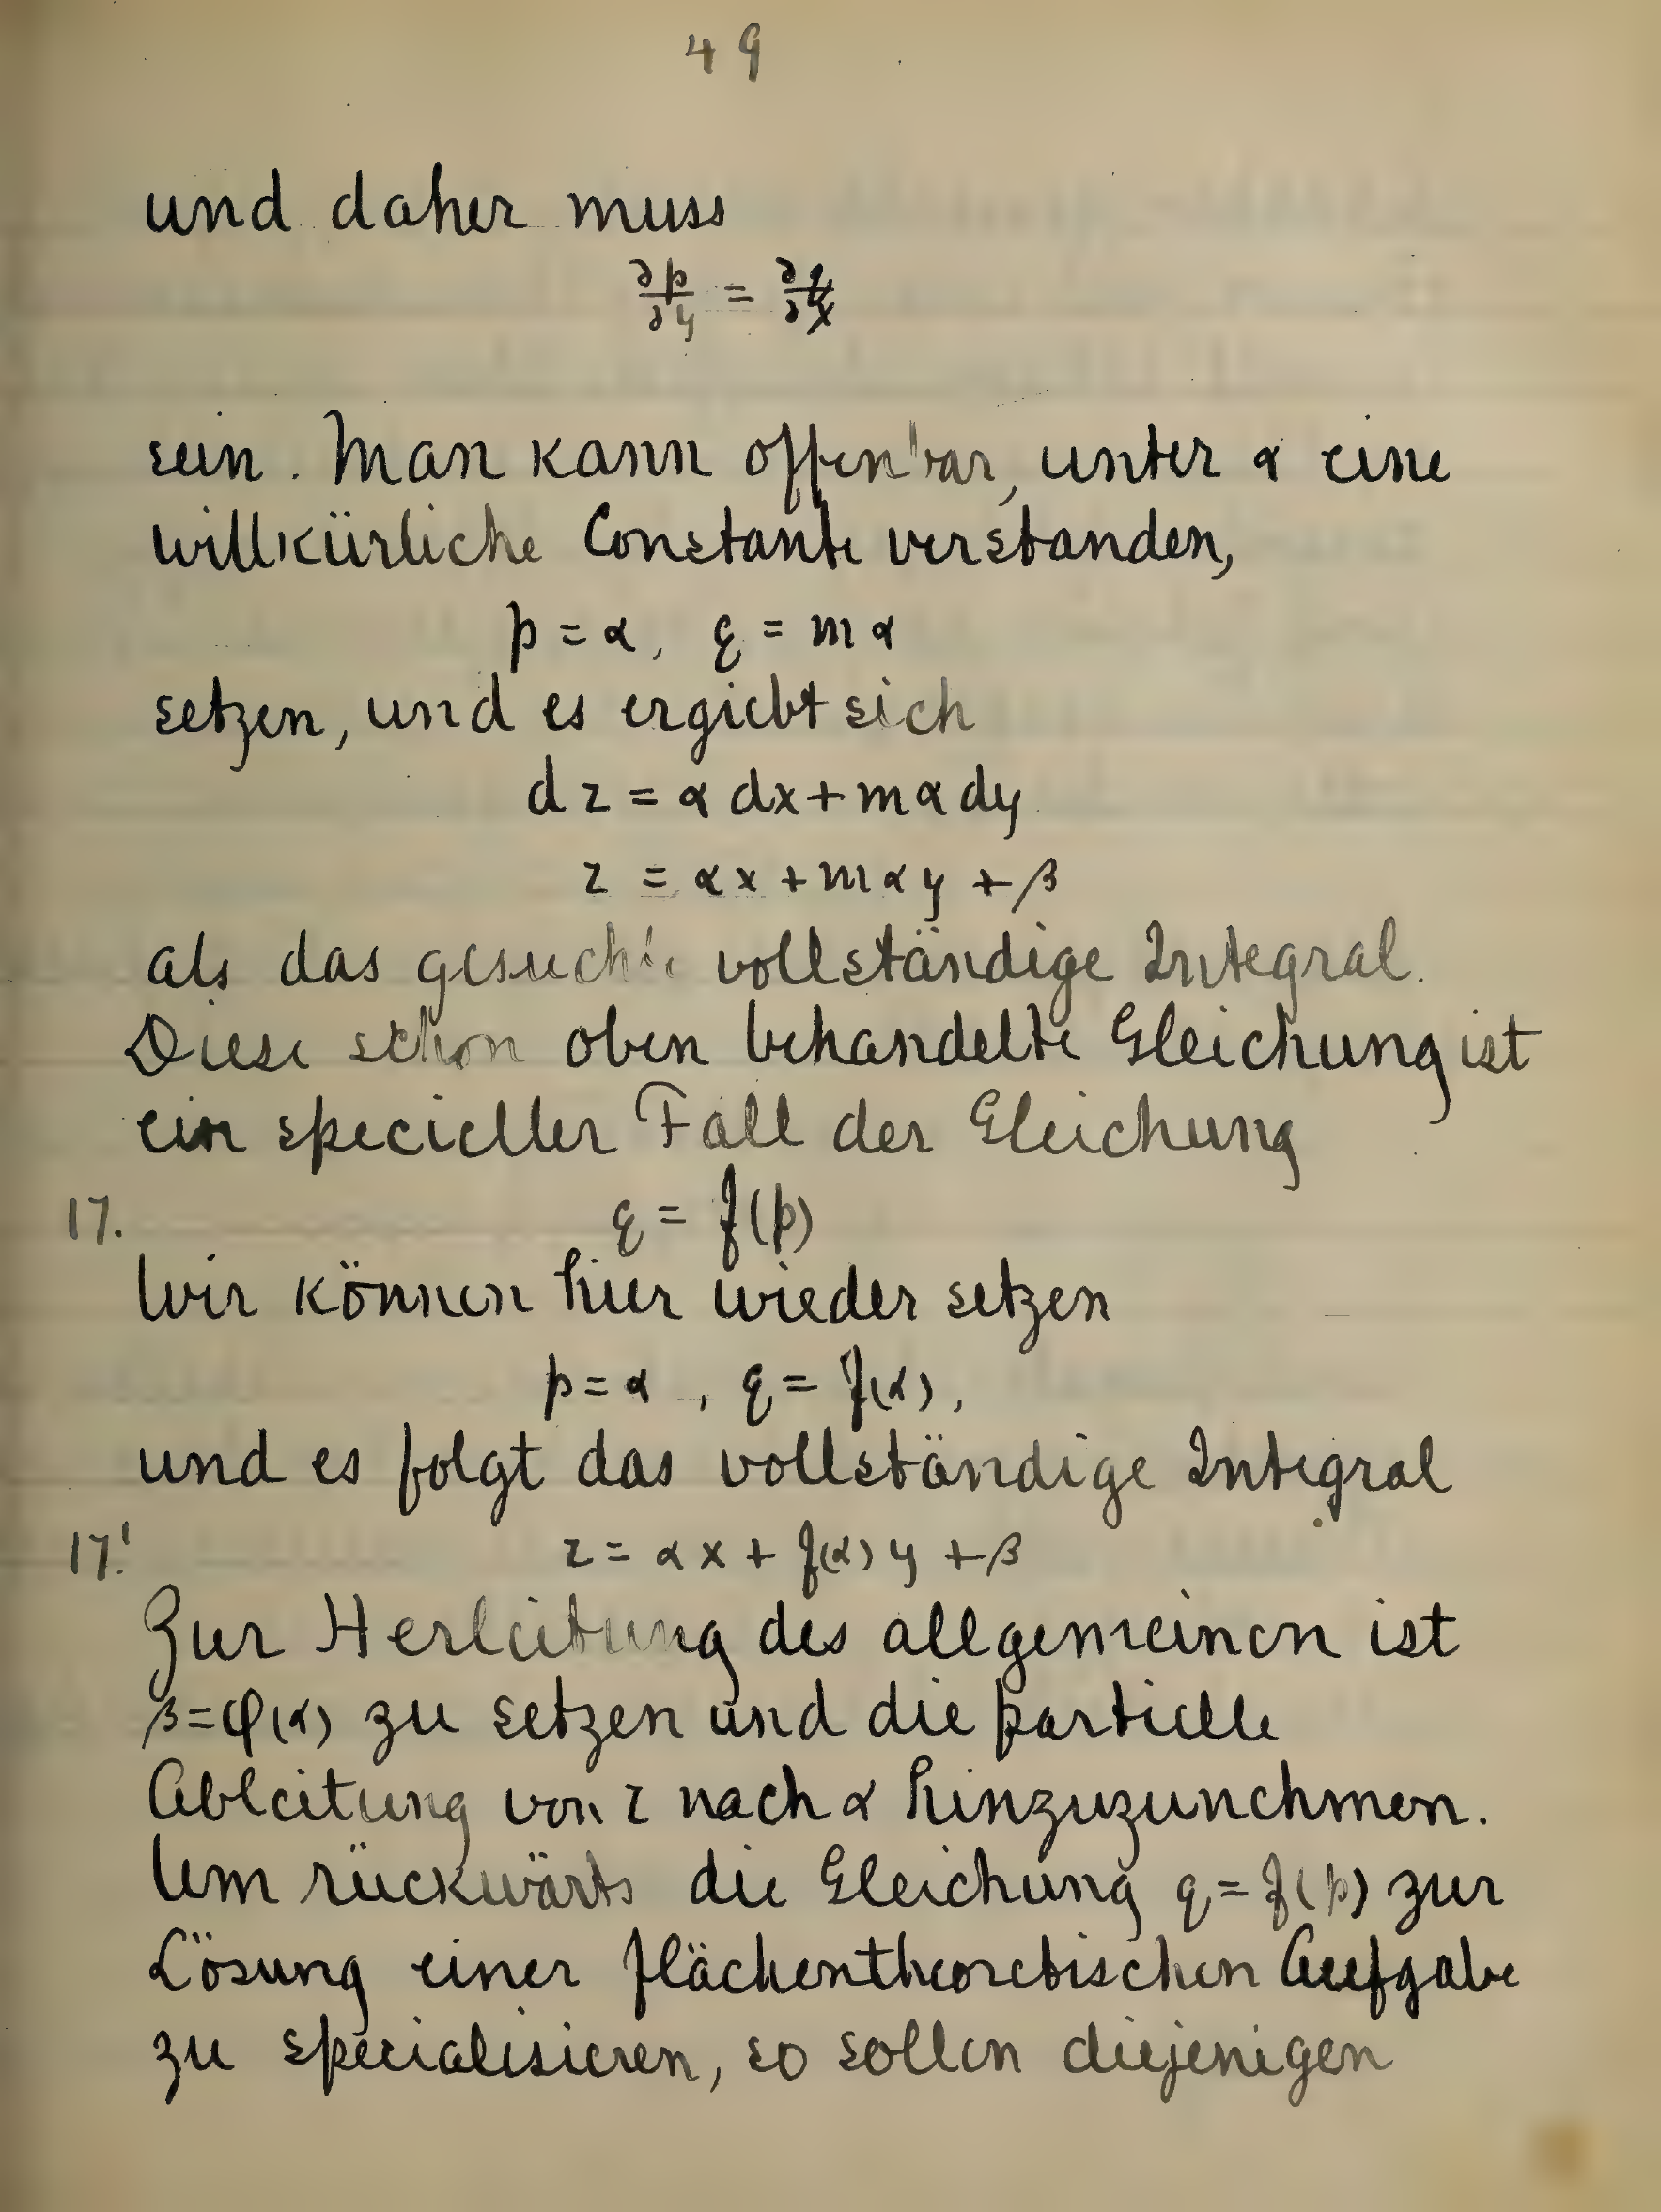 49
und daher muss
∂p/∂y = ∂q/∂x
sein. Man kann offenbar, unter α eine
willkürliche Constante verstanden,
p = α, q = mα
setzen, und es ergiebt sich
dz = α dx + mα dy
z = αx + mαy + β
als das gesuchte vollständige Integral.
Diese schon oben behandelte Gleichung ist
ein specieller Fall der Gleichung
17. q = f(p)
Wir können hier wieder setzen
p = α, q = f(α),
und es folgt das vollständige Integral
17.' z = αx + f(α)y + β
Zur Herleitung des allgemeinen ist
β = φ(α) zu setzen und die partielle
Ableitung von z nach α hinzuzunehmen.
Um rückwärts die Gleichung q = f(p) zur
Lösung einer flächentheoretischen Aufgabe
zu specialisieren, so sollen diejenigen